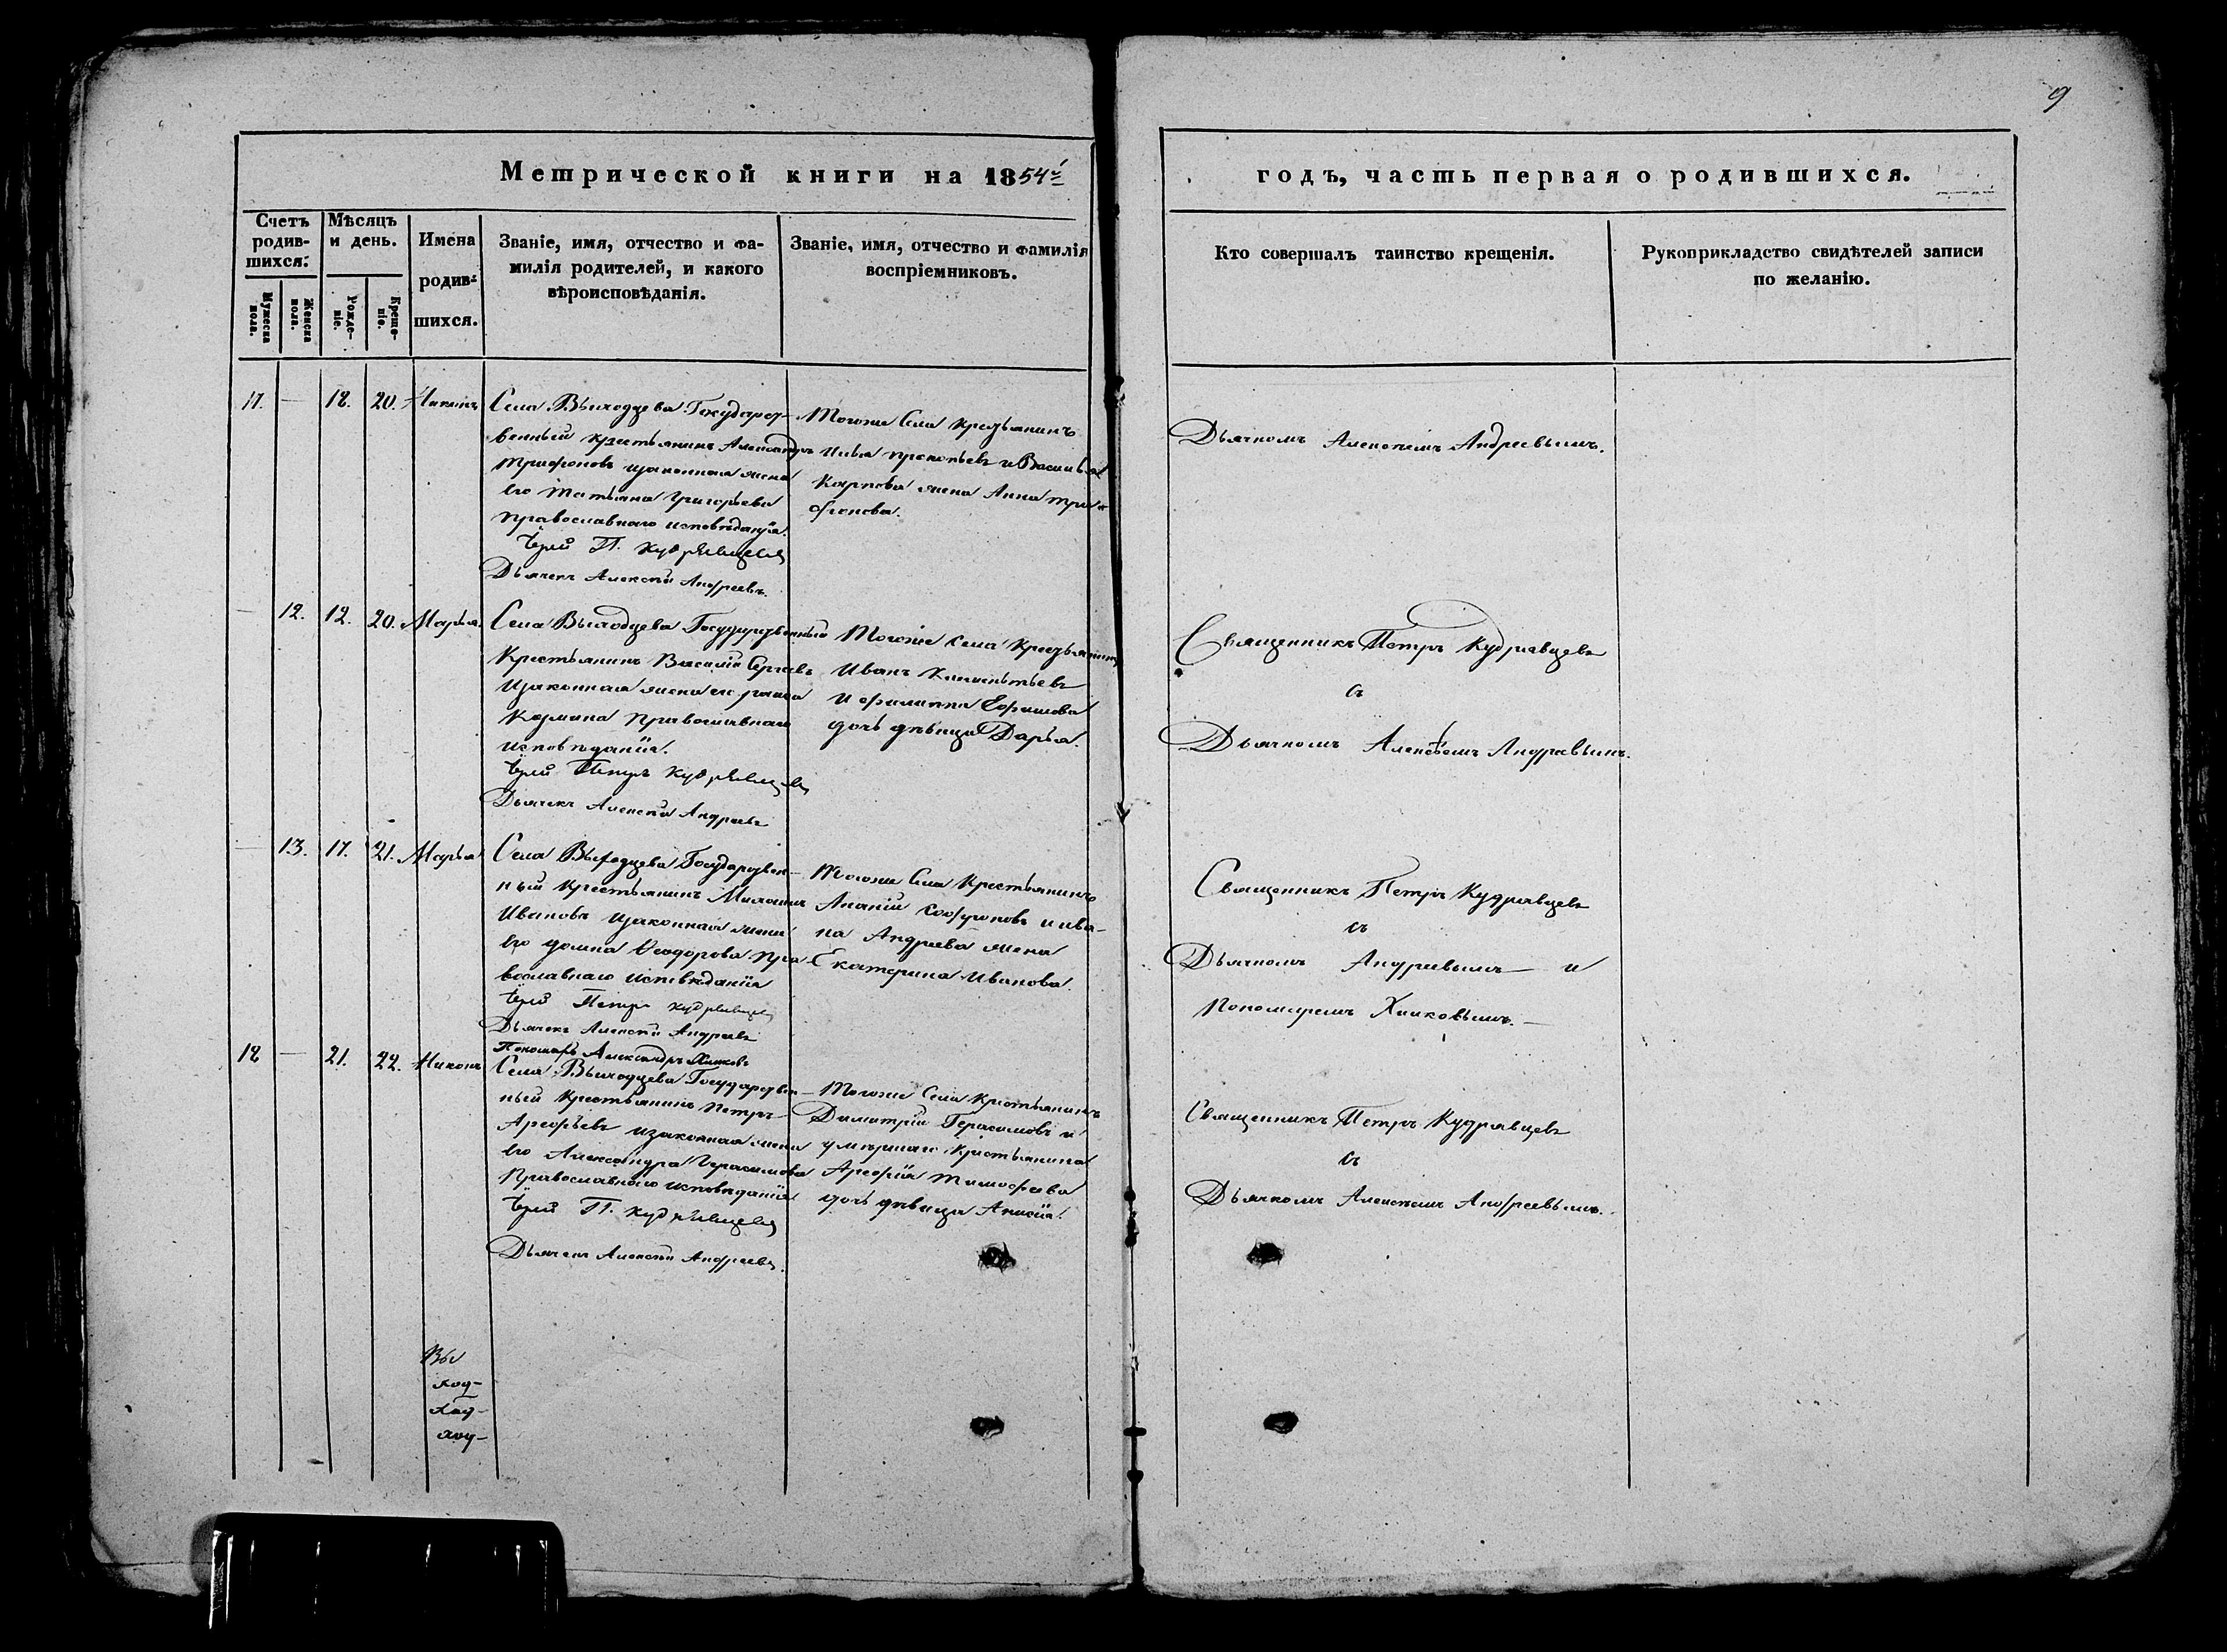 9
Метрической книги на 1854й
годъ, часть первая о родившихся.
Счетъ родив-шихся.
Мѣсяцъ и день.
Имена родив-шихся.
Званіе, имя, отчество и фа-
милія родителей, и какого
вѣроисповѣданія.
Званіе, имя, отчество и фамилія
воспріемниковъ.
Кто совершалъ таинство крещенія.
Рукоприкладство свидѣтелей записи
по желанію.
Мужеска пола.
Женска пола.
Рожде-ніе.
Креще-ніе.
— 18. 20.
Села Выходцева Государст-
венный крестьянинъ Александръ
Трифоновъ изаконная жена
его Татьяна Григорьева
православнаго исповѣданія.
Іерей П. Кудрявцевъ
Дьячекъ Алексѣй Андреевъ.
Тогоже Села Крестьянинъ
Илья Прокопьевъ и Василья
Карпова жена Анна Три-
фонова.
Дьячкомъ Алексѣемъ Андреевымъ.
— 12. 12. 20. Марья.
Села Выходцева Государственный
Крестьянинъ Василій Сергѣевъ
изаконная жена его
Козмина Православнаго
исповѣданія.
Іерей Петръ Кудрявцевъ
Дьячекъ Алексѣй Андреевъ
Тогоже села Крестьянинъ
Иванъ
и Филиппа Ефимова
дочь дѣвица Дарья.
Священникъ Петръ Кудрявцевъ
съ
Дьячкомъ Алексѣемъ Андреевымъ.
— 13. 17. 21. Марья
Села Выходцева Государствен-
ный Крестьянинъ
Ивановъ изаконная жена
его Домна Феодорова Пра-
вославнаго исповѣданія
Іерей Петръ Кудрявцевъ
Дьячекъ Алексѣй Андреевъ
Пономарь Александръ Хилковъ
Тогоже Села Крестьянинъ
Ананій Софроновъ и Ива-
на Андреева жена
Екатерина Иванова.
Священникъ Петръ Кудрявцевъ
съ
Дьячкомъ Андреевымъ — и
Пономаремъ Хилковымъ. —
18 — 21. 22. Никонъ
Села Выходцева Государствен-
ный Крестьянинъ Петръ
Арефьевъ изаконная жена
его Александра Герасимова
Православнаго исповѣданія
Іерей П. Кудрявцевъ
Дьячекъ Алексѣй Андреевъ.
Тогоже Села Крестьянинъ
Димитрій Герасимовъ и
умершаго Крестьянина
Арефія Тимофеева
дочь дѣвица Анисія.
Священникъ Петръ Кудрявцевъ
съ
Дьячкомъ Алексѣемъ Андреевымъ.
Вы
ход-
ход-
ход-